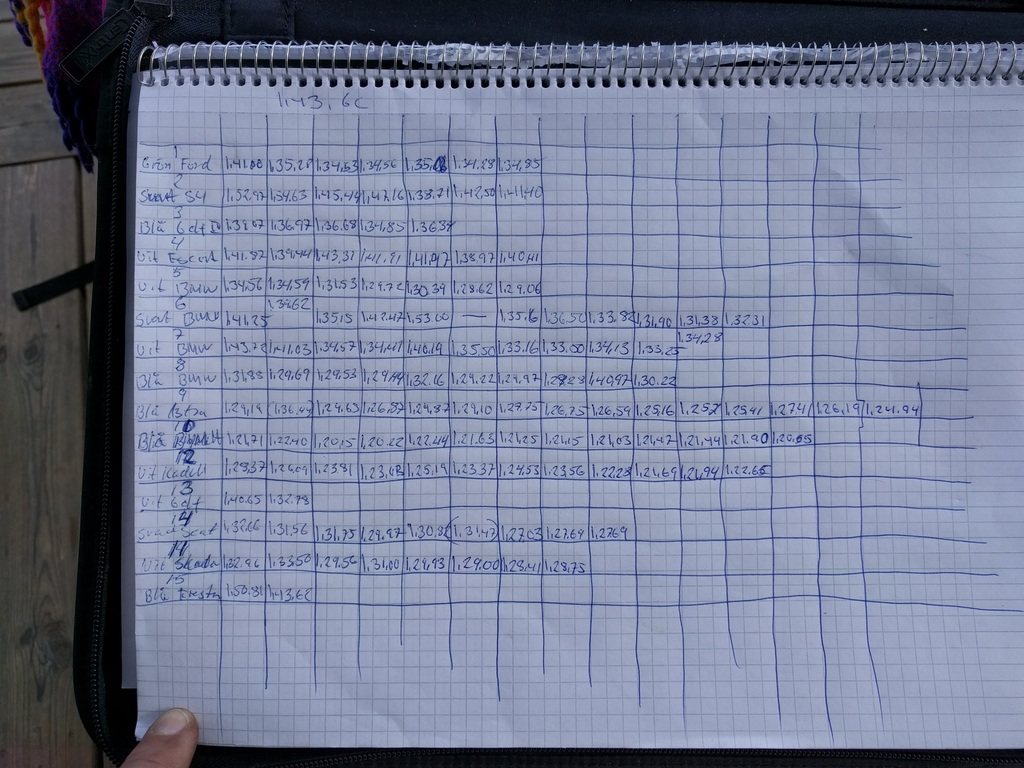 1
Grön Ford 1,41.00 1,35,28 1,34,53 1,34,56 1,34.28 1,34,85
2
Svart S4 1,52.97 1,54.63 1,45,49 1,42,16 1,38,71 1,42,50 1,41,40
3
Blå Golf 1,39,07 1,36.97 1,36.68 1,34,85 1.36.38
4
Vit Escort 1,41.82 1,39,44 1,43,31 1,41,91 1,38,97 1,40,41
5
Vit BMW 1,34,56 1,34,59 1,31,53 1,29,72 1,30,39 1,28,62 1,29,06
6
Svart BMW 1,41,25 1,39,62 1,35,15 1,42,47 1,53,00 — 1,35,16 1,36,50 1,33,82 1,31,90 1,31,33 1,32,31
7
Vit BMW 1,43,78 1,41,03 1,34,57 1,34,41 1,40,19 1,35,50 1,33,16 1,33,00 1,34,13 1,33,25 1,34,28
8
Blå BMW 1,31,88 1,29,69 1,29,53 1,29,44 1,32.16 1,29,22 1,29,97 1,28,28 1,40,97 1,30.22
9
Blå Astra 1,29,19 (1,36,49) 1,29,63 1,26,87 1,29,87 1,29,10 1,29,75 1,26,75 1,26,59 1,25,16 1,25,41 1,27,41 1,26,19 1,24.94
10
Blå 1,21,71 1,22,40 1,20,15 1,20.22 1,22,44 1,21.63 1,21,25 1,21,15 1,21,03 1,21,47 1,21,44 1,21.90 1,20.65
12
Vit Kadett 1,28,37 1,26,09 1,23,81 1,23,48 1,25,19 1,23,37 1,24,53 1,23,56 1,22,28 1,21,69 1,21,94 1,22,65
13
Vit Golf 1,40.65 1,32.78
14
Svart Seat 1,32,66 1,31,56 1,31,75 1,29,97 1,30,82 (1,31,47) 1,27,03 1,27,69 1,27,69
Vit Skoda 1,32.96 1,33,50 1,29,56 1,31,00 1,29,93 1,29,00 1,28,41 1,28,75
15
Blå 1,50,81 1,43,62